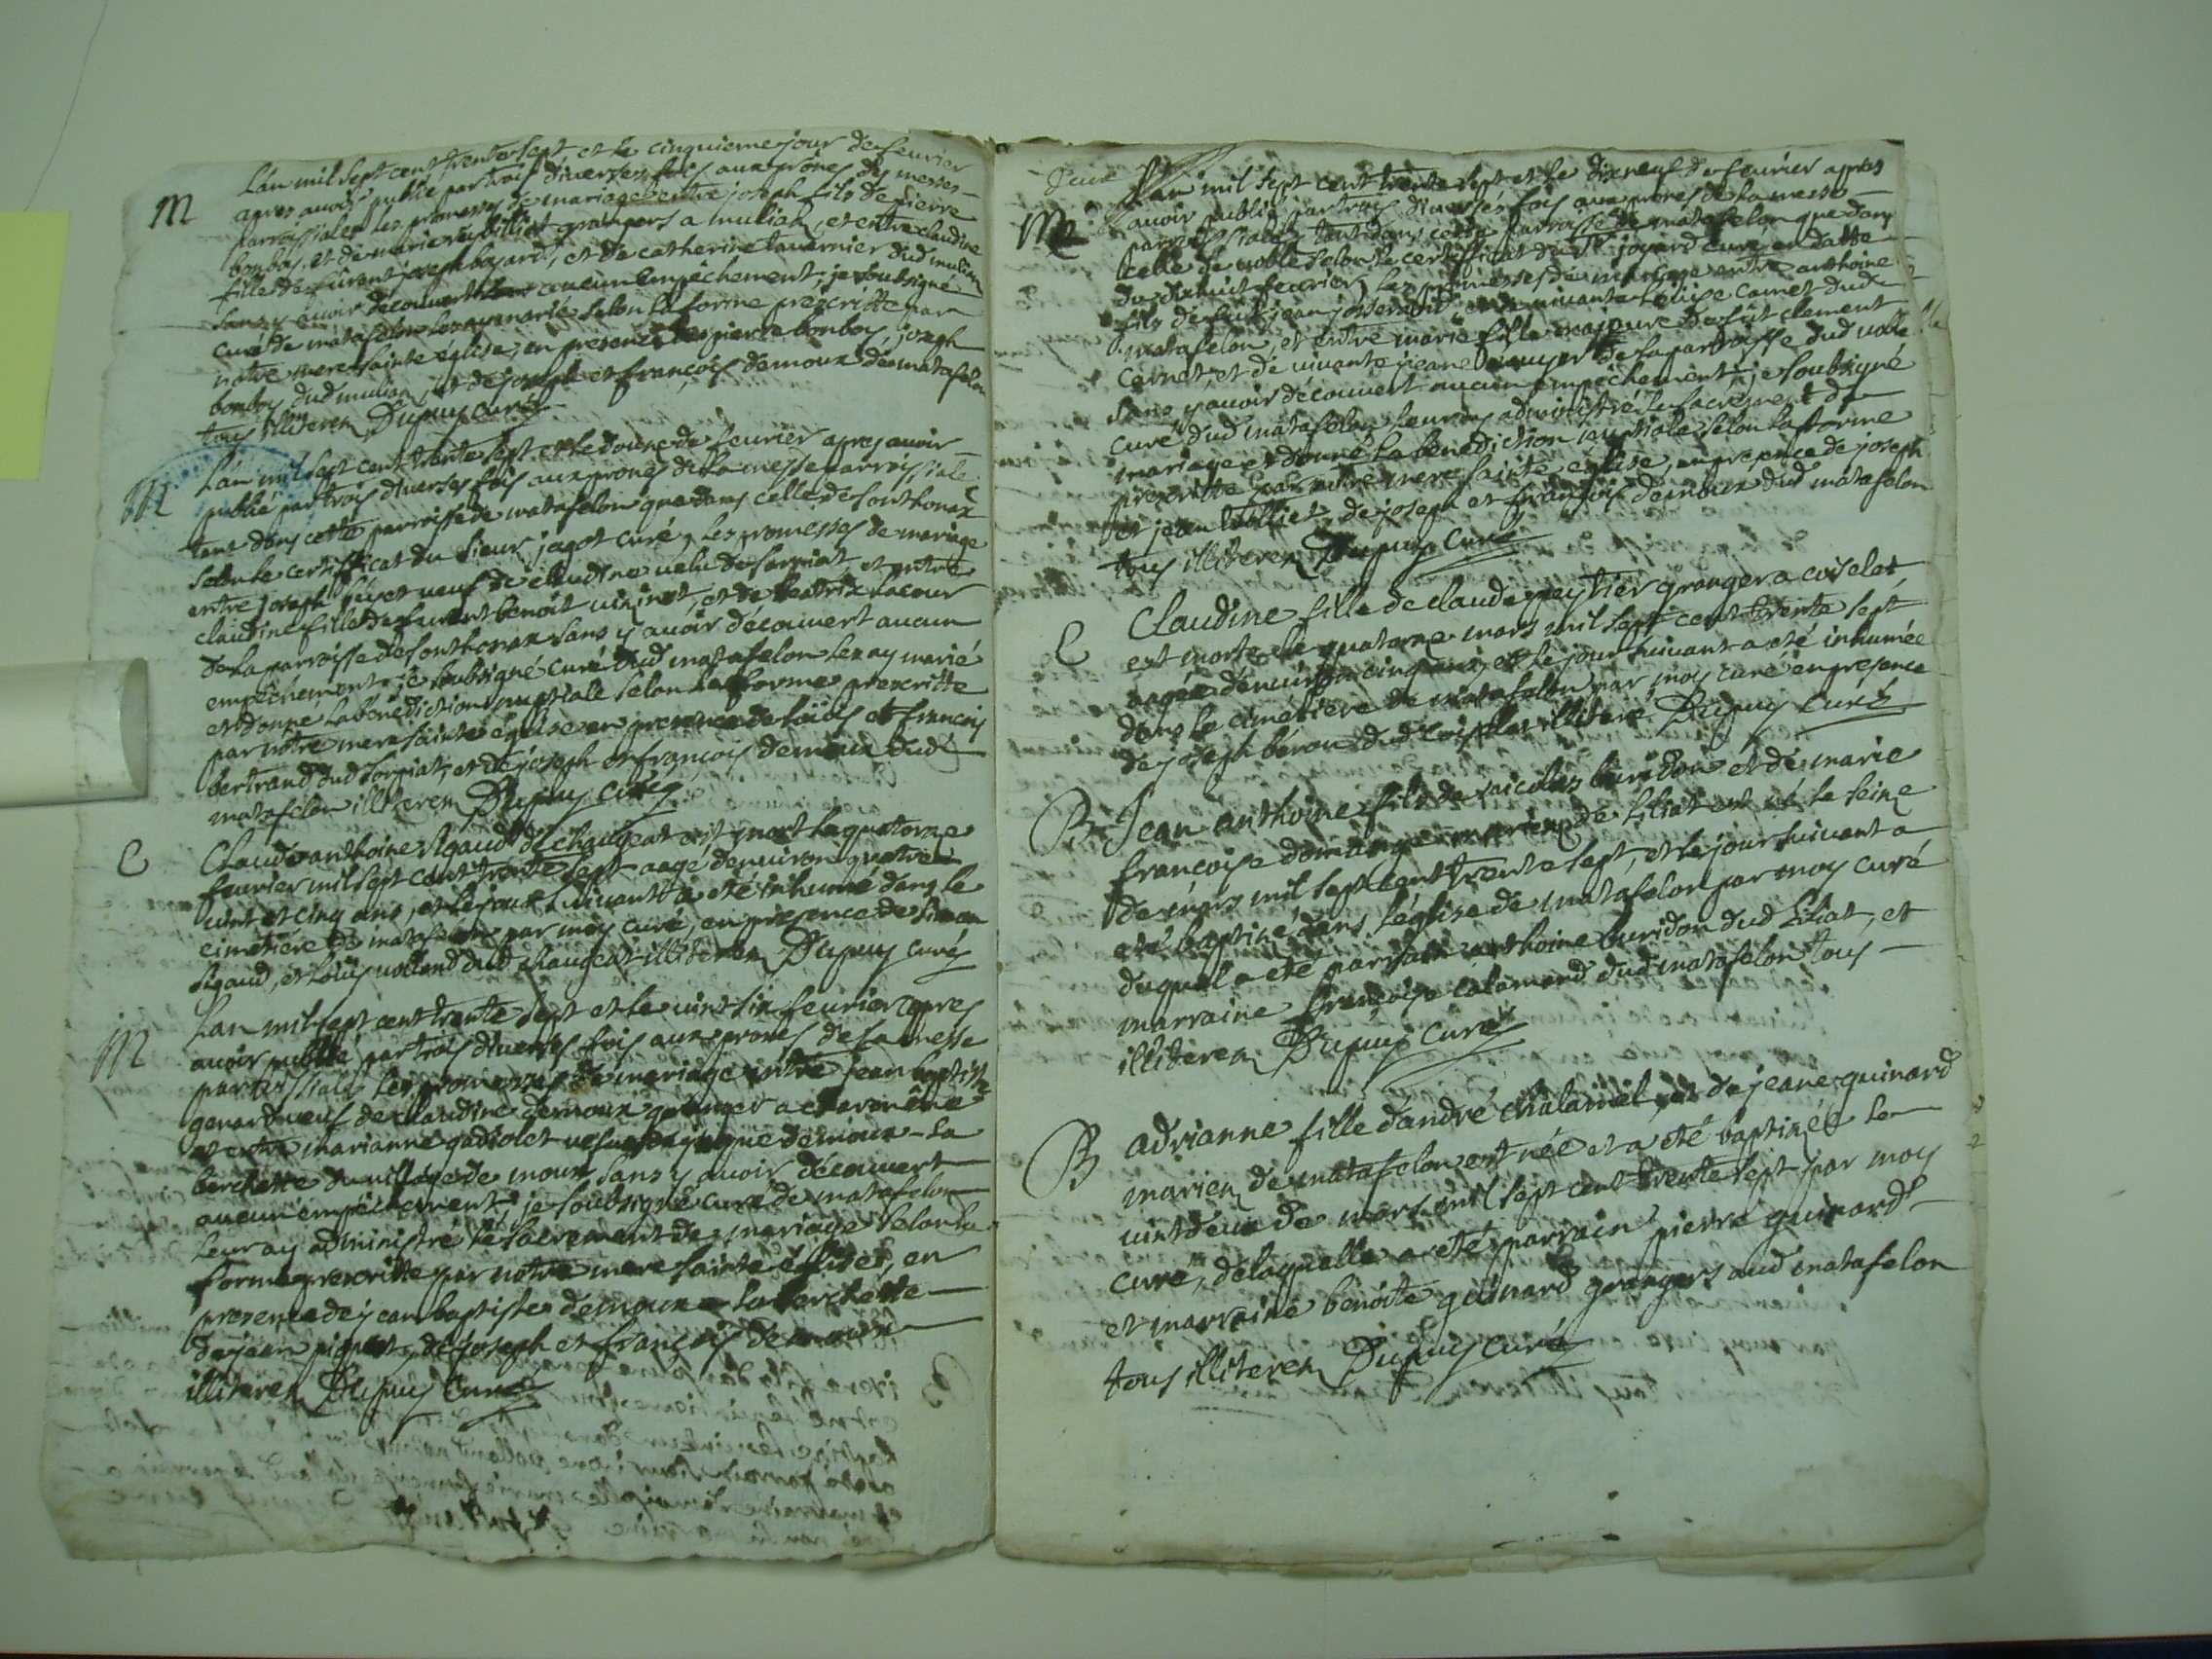 M
L'an mil sept cent trente sept et le cinquieme jour de feurier
apres auoir publié par trois diuerses fois aux prônes des messes
parroissiales les promesses de mariage entre joseph fils de pierre
bonboy, et de marie reybilliet grangers a muliah, et entre claudine
fille de fûrent joseph boyard, et de catherine tauernier dud mulian
sans y auoir decouuert aucun empéchement, je soubsigné
curé de matafelon les ay marié selon la forme prezcritte par
nôtre mere sainte église, en presence de pierre bonboy, joseph
bonboy dud mulian, et de joseph et françois demoux de matafelon
tous illiterez Dupuy curé
M
L'an mil sept cent trente sept et le douze de feurier apres auoir
publié par trois diuerses fois aux prones de la messe parroissiale
tant dans cette parroisse de matafelon que dans celle de sonthonax
selon le certifficat du sieur jagot curé, les promesses de mariage
entre joseph et ueuf de claudine uelu de sorpiat et entre
claudine fille de furent benoit uininet, et de beatrix lacour
de la parroisse de sonthonax sans y auoir découuert aucun
empêchement je soubsigné curé dud matafelon les ay marié
et donné la benediction nuptiale selon la forme prezcritte
par nôtre mere sainte église en presence de loüis et francois
bertrand dud sorpiat, et de joseph et françois demoux dud
matafelon illiterez Dupuy curé
C
Claude anthoine Rgaud de chaugeat est mort le quatorze
feurier mil sept cent trente sept aage d'enuiron quatre
uint et cinq ans, et le jour suiuant a été inhumé dans le
cimetiere de matafelon par moy curé, en presence de simon
Rgaud, et loüis nolland dud chaugeat illiterez Dupuy curé
M
L'an mil sept cent trente sept et le uint six feurier apres
auoir publié par trois diuerses fois aux prones de la messe
parroissiale les promesses de mariage entre jean baptiste
gouard ueuf de claudine demoux granger a charmône
et entre marianne gadiolet ueufue demoux - la
berchette du uillage de moux sans y auoir découuert
aucun empéchement, je soubsigné curé de matafelon
leur ay administré le sacrement de mariage selon la
forme prezcritte par nôtre mere sainte église, en
presence de jean baptiste demoux la berchette
de jean piquet, de joseph et françois demoux
illiterez Dupuy curé
M
L'an mil sept cent trente sept et le dixneuf de feurier apres
auoir publié par trois diuerses fois aux prones de la messe
parroissiale, tant dans cette parroisse de matafelon que dans
celle de uolle selon le certifficat du Sr joyard curé en datte
du dixhuit feurier, les promesses de mariage entre anthoine
fils de feut jean josserand, et de uiuante Louise carnet dud
matafelon, et entre marie fille majeure de fût clement
carnet, et de uiuante jeane de la parroisse dud uolle
sans y auoir découuert aucun empéchement, je soubsigné
curé dud matafelon leur ay administré le sacrement de
mariage et donné la benediction nuptiale selon la forme
prezcritte par nôtre mere sainte église, en presence de joseph
et jean de joseph et françois demoux dud matafelon
tous illiterez Dupuy curé
C
Claudine fille de claude peytier granger a coiselet
est morte le quatorze mars mil sept cent trente sept
aagée d'enuiron cinq ans, et le jour suiuant a été inhumée
dans le cimetiere de matafelon par moy curé en presence
de joseph béroud dud coiselet illiteré Dupuy curé
B
Jean anthoine fils de nicolas buridon et de marie
françoise domange mariez de siliat est né le seize
de mars mil sept cent trente sept, et le jour suiuant a
été baptizé dans l'église de matafelon par moy curé
duquel a été parrain anthoine buridon dud siliat, et
marraine françoise calamard dud matafelon tous
illiterez Dupuy curé
B
adrianne fille d'andré chalamel, et de jeane guinard
mariez de matafelon est née et a été baptizée le
uint deux de mars mil sept cent trente sept par moy
curé, de laquelle a été parrain pierre guinard
et marraine benoite guinard grangers aud matafelon
tous illiterez Dupuy curé